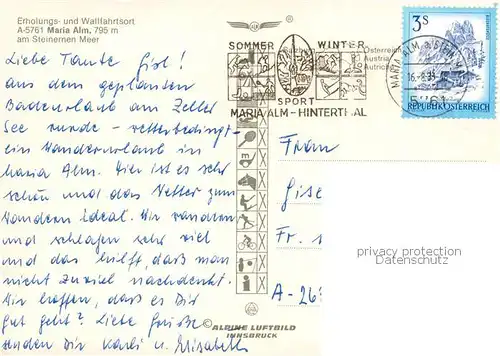 Erholungs- und Wallfahrtsort
A-5761 Maria Alm, 795 m
am Steinernen Meer
Liebe Tante Gisl!
aus dem geplanten
Badeurlaub am Zeller
See wurde - wetterbedingt -
ein Wanderurlaub in
Maria Alm. Hier ist es sehr
schön und das Wetter zum
Wandern ideal. Wir wandern
und schlafen sehr viel
und das hilft, daß man
nicht zuviel nachdenkt.
Wir hoffen, dass es Dir
gut geht? Liebe Grüße
senden Dir Karli u. Elisabeth
SOMMER WINTER
Österreich
Austria
Autriche
SPORT
MARIA ALM - HINTERTHAL
MARIA ALM a. STEIN. M
16.
3 S
REPUBLIK ÖSTERREICH
Frau
Gise
Fr.
A - 26
privacy protection
Datenschutz
© ALPINE LUFTBILD
INNSBRUCK